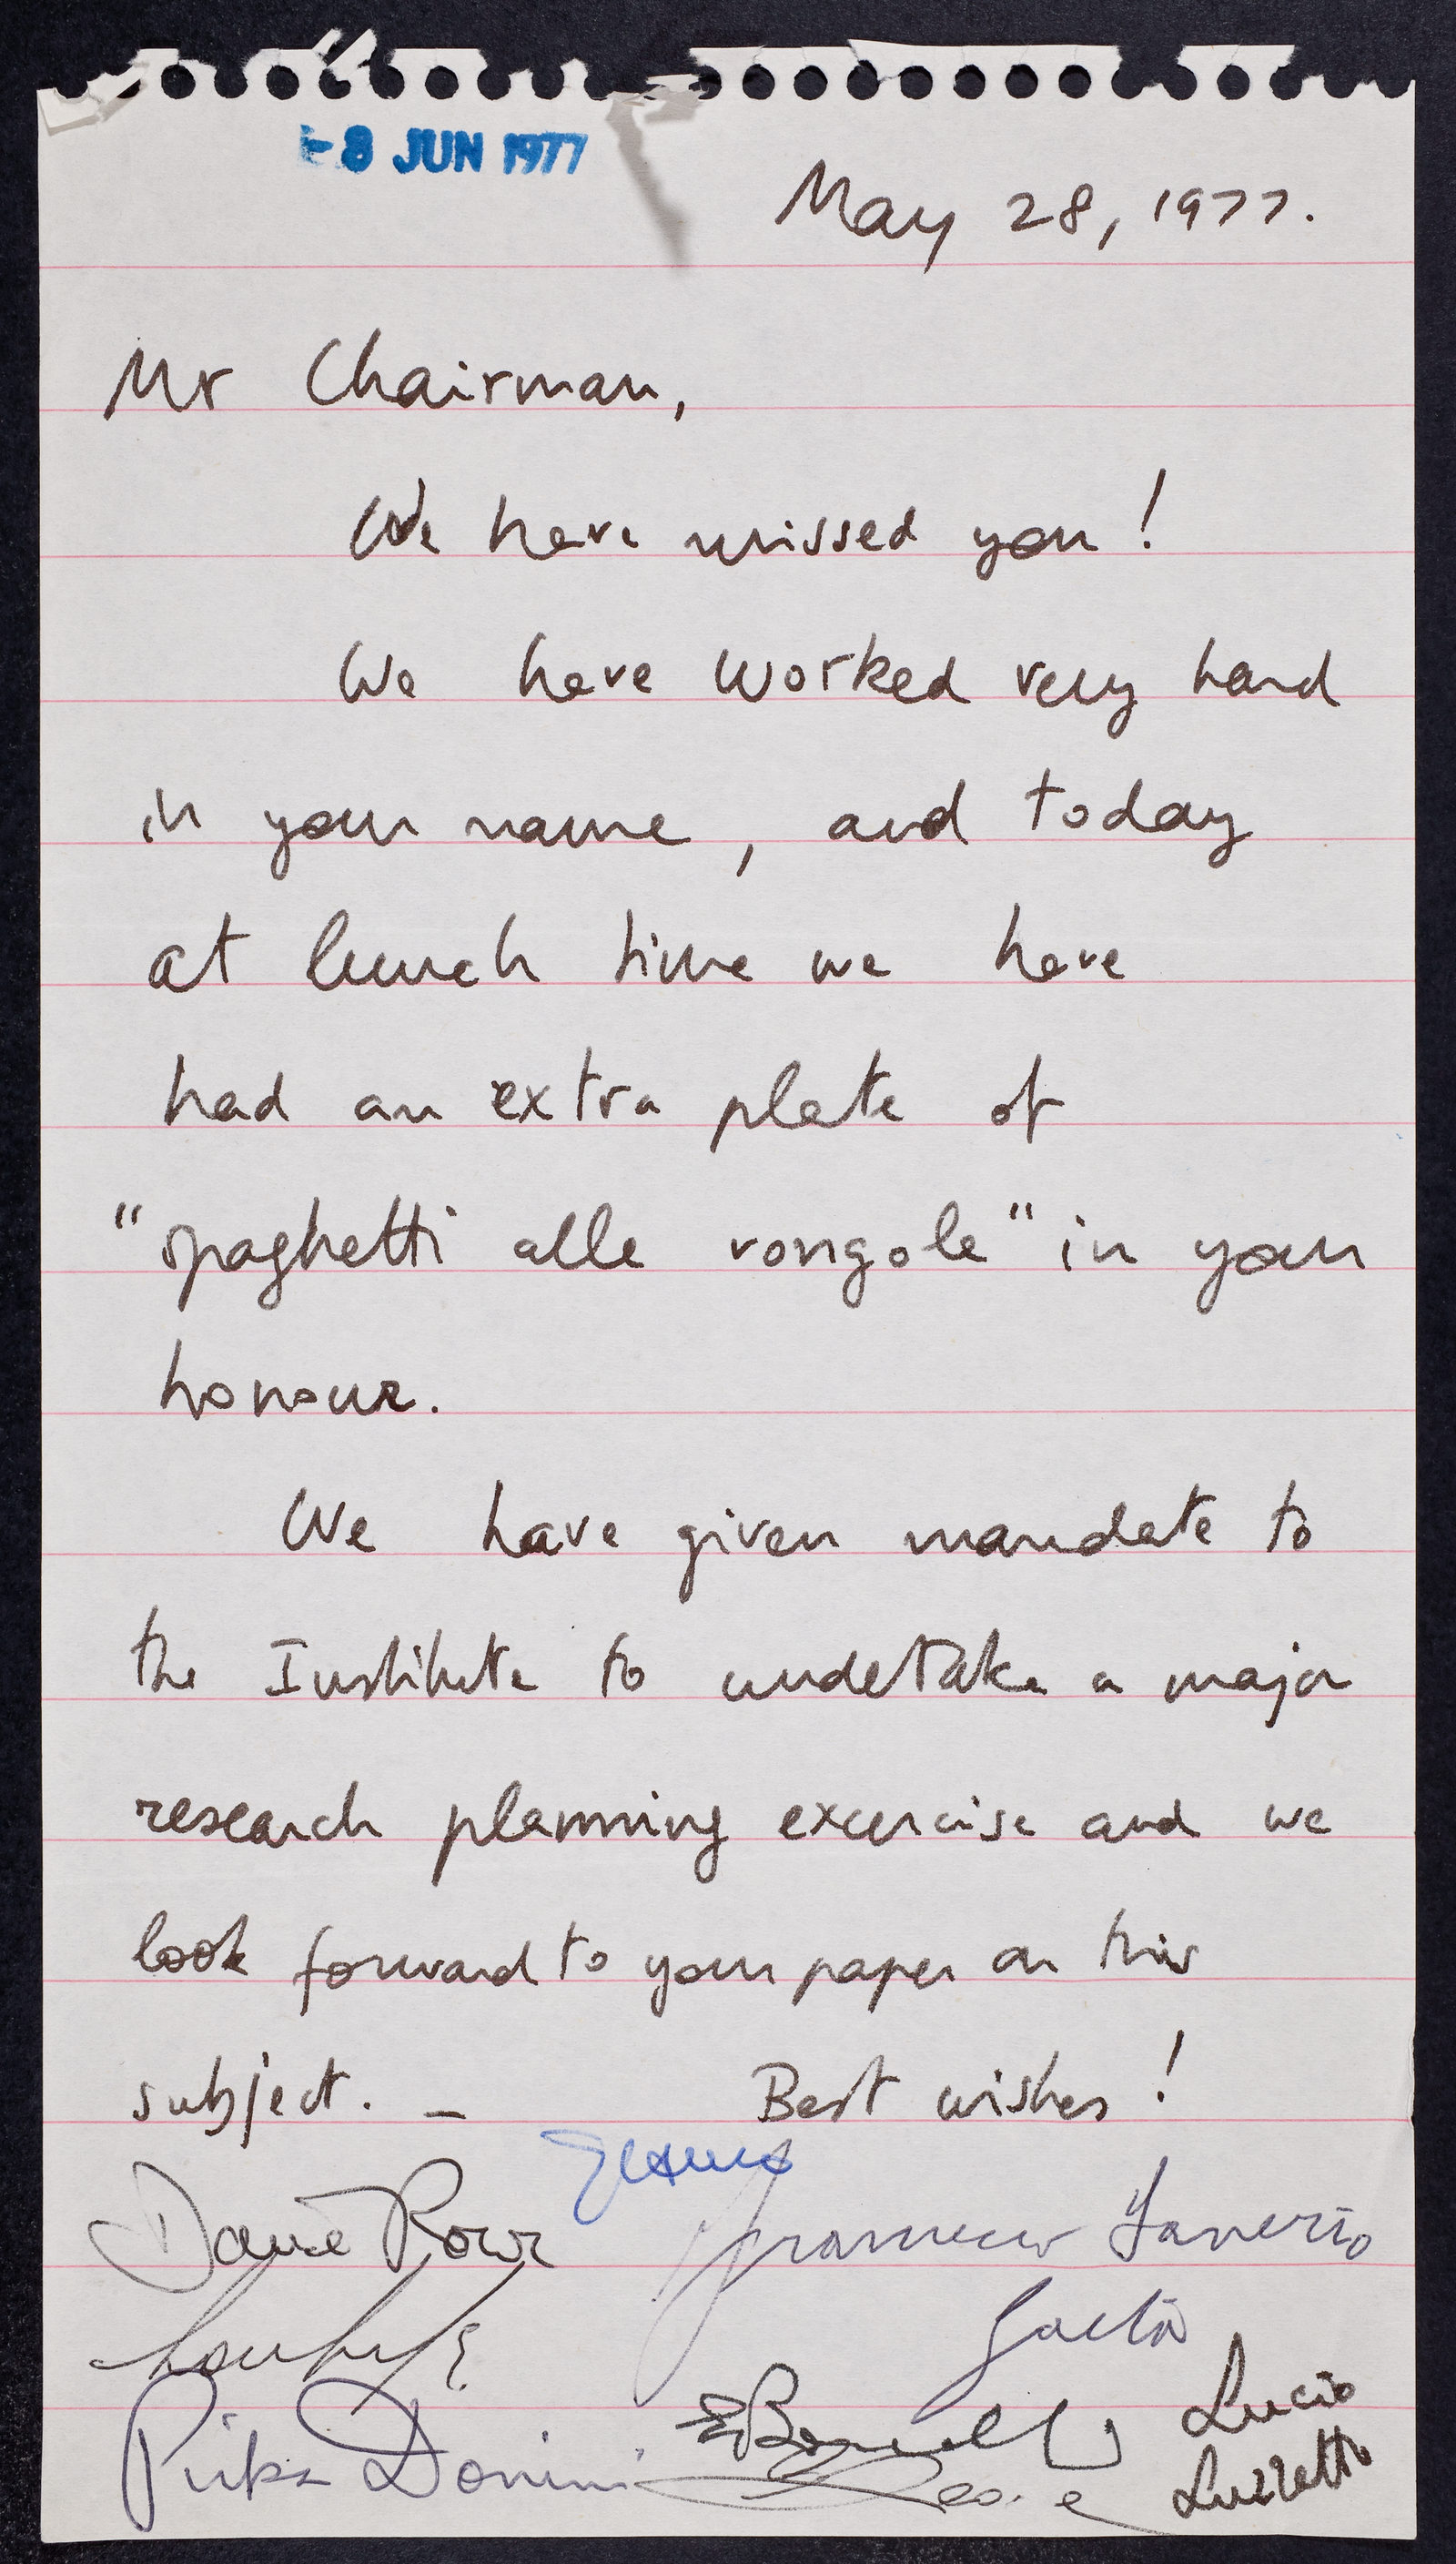 -8 JUN 1977
May 28, 1977.
Mr Chairman,
We have missed you!
We have worked very hard
in your name, and today
at lunch time we have
had an extra plate of
"spaghetti alle vongole" in your
honour.
We have given mandate to
the Institute to undetake a major
research planning excercise and we
look forward to your paper on this
subject. _ Best wishes!
Saverio
Gaeta
Lucio
Pirkz Donini
Luzzatto